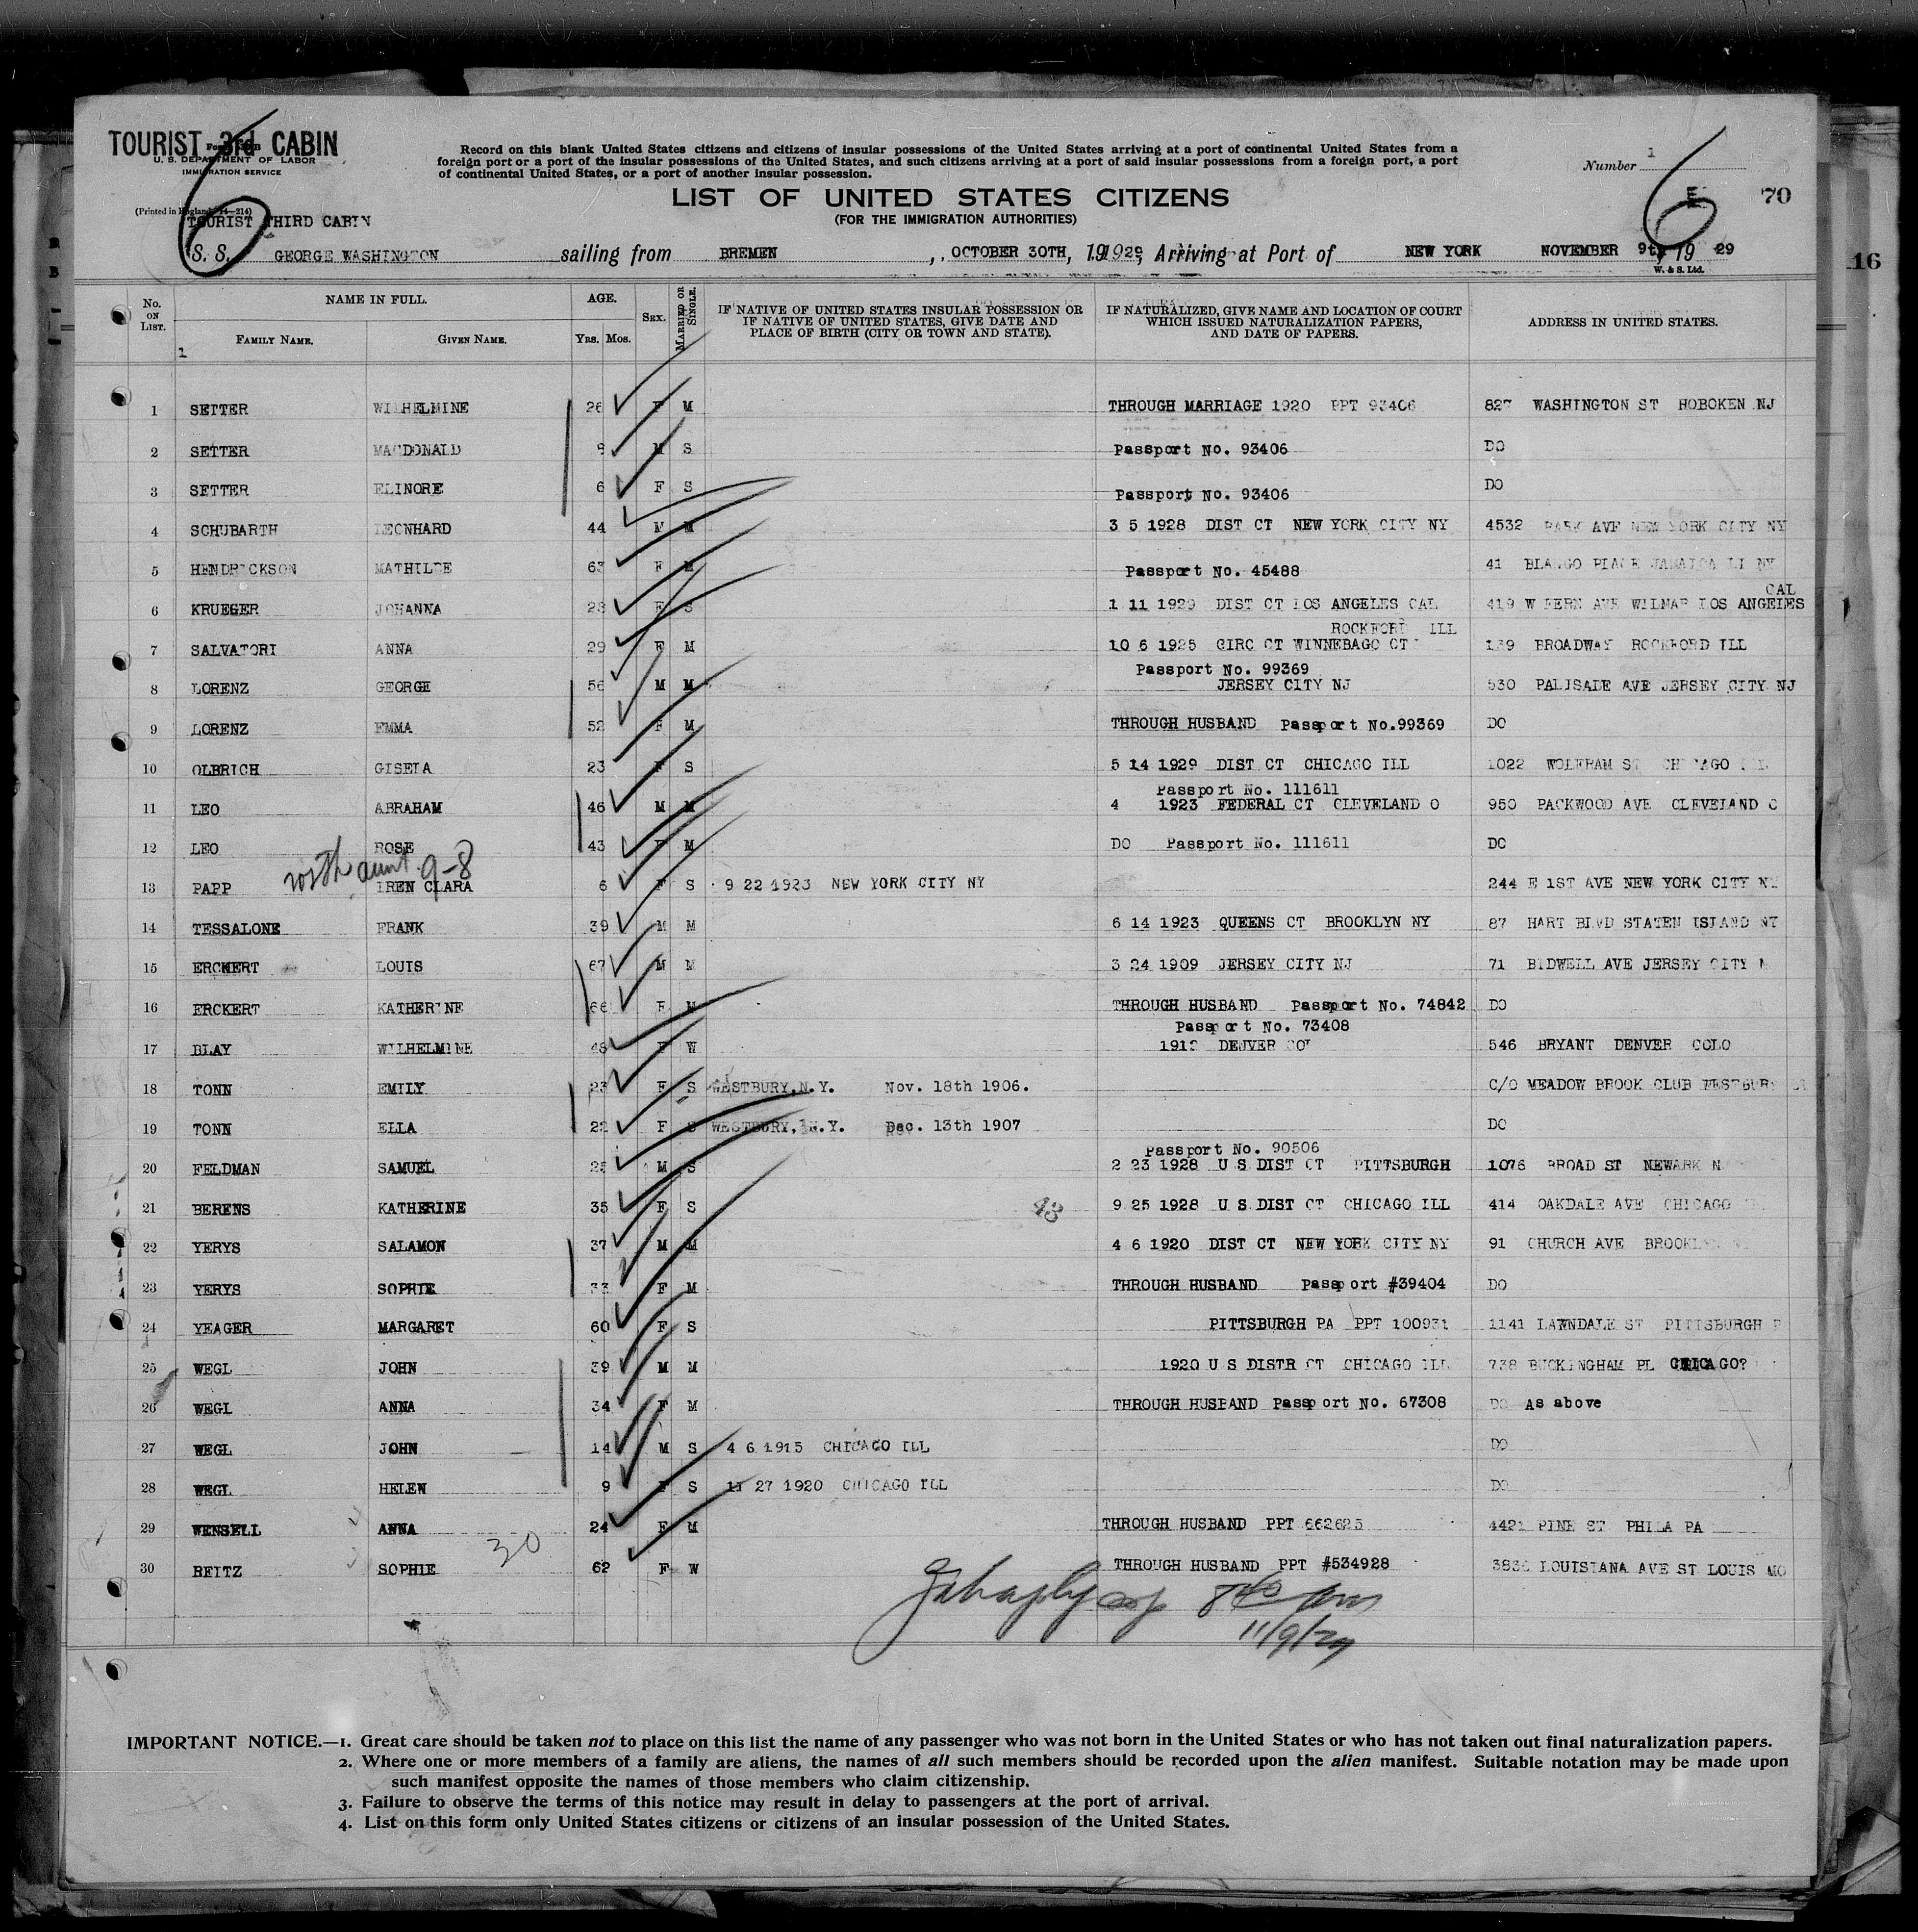 TOURIST 3rd CABIN
U. S. DEPARTMENT OF LABOR
IMMIGRATION SERVICE
(Printed in England 14—214)
TOURIST THIRD CABIN
Record on this blank United States citizens and citizens of insular possessions of the United States arriving at a port of continental United States from a
foreign port or a port of the insular possessions of the United States, and such citizens arriving at a port of said insular possessions from a foreign port, a port
of continental United States, or a port of another insular possession.
Number 1
6
6
E
70
16
LIST OF UNITED STATES CITIZENS
(FOR THE IMMIGRATION AUTHORITIES)
S. S. GEORGE WASHINGTON sailing from BREMEN , OCTOBER 30TH, 1929, Arriving at Port of NEW YORK NOVEMBER 9th 19 29
W. & S. Ltd.
No. ON LIST. NAME IN FULL. FAMILY NAME. GIVEN NAME. AGE. YRS. MOS. SEX. MARRIED OR SINGLE. IF NATIVE OF UNITED STATES INSULAR POSSESSION OR IF NATIVE OF UNITED STATES, GIVE DATE AND PLACE OF BIRTH (CITY OR TOWN AND STATE). IF NATURALIZED, GIVE NAME AND LOCATION OF COURT WHICH ISSUED NATURALIZATION PAPERS, AND DATE OF PAPERS. ADDRESS IN UNITED STATES.
1
1 SETTER WILHELMINE 26 F M THROUGH MARRIAGE 1920 PPT 93406 827 WASHINGTON ST HOBOKEN NJ
2 SETTER MACDONALD 9 M S Passport No. 93406 DO
3 SETTER ELINORE 6 F S Passport No. 93406 DO
4 SCHUBARTH LEONHARD 44 M M 3 5 1928 DIST CT NEW YORK CITY NY 4532 PARK AVE NEW YORK CITY NY
5 HENDRICKSON MATHILDE 63 F M Passport No. 45488 41 PLACE JAMAICA LI NY
CAL
6 KRUEGER JOHANNA 28 F S 1 11 1929 DIST CT LOS ANGELES CAL 419 W FERN AVE WILMAR LOS ANGELES
ROCKFORD ILL
7 SALVATORI ANNA 29 F M 10 6 1925 CIRC CT WINNEBAGO CT 139 BROADWAY ROCKFORD ILL
Passport No. 99369
8 LORENZ GEORGE 56 M M JERSEY CITY NJ 530 PALISADE AVE JERSEY CITY NJ
9 LORENZ EMMA 52 F M THROUGH HUSBAND Passport No.99369 DO
10 OLBRICH GISELA 23 F S 5 14 1929 DIST CT CHICAGO ILL 1022 WOLFRAM ST CHICAGO
Passport No. 111611
11 LEO ABRAHAM 46 M M 4 1923 FEDERAL CT CLEVELAND O 950 PACKWOOD AVE CLEVELAND O
12 LEO ROSE 43 F M DO Passport No. 111611 DO
with aunt 9-8
13 PAPP IREN CLARA 6 F S 9 22 1923 NEW YORK CITY NY 244 E 1ST AVE NEW YORK CITY
14 TESSALONE FRANK 39 M M 6 14 1923 QUEENS CT BROOKLYN NY 87 HART BLVD STATEN ISLAND NY
15 ERCKERT LOUIS 67 M M 3 24 1909 JERSEY CITY NJ 71 BIDWELL AVE JERSEY CITY
16 ERCKERT KATHERINE 66 F M THROUGH HUSBAND Passport No. 74842 DO
Passport No. 73408
17 BLAY WILHELMINE 48 F W 1912 DENVER COL 546 BRYANT DENVER COLO
18 TONN EMILY 23 F S WESTBURY,N.Y. Nov. 18th 1906. C/O MEADOW BROOK CLUB WESTBURY
19 TONN ELLA 22 F S WESTBURY, N.Y. Dec. 13th 1907 DO
Passport No. 90506
20 FELDMAN SAMUEL 25 M S 2 23 1928 U S DIST CT PITTSBURGH 1076 BROAD ST NEWARK N
21 BERENS KATHERINE 35 F S 43 9 25 1928 U S DIST CT CHICAGO ILL 414 OAKDALE AVE CHICAGO
22 YERYS SALAMON 37 M M 4 6 1920 DIST CT NEW YORK CITY NY 91 CHURCH AVE BROOKLYN
23 YERYS SOPHIE 33 F M THROUGH HUSBAND Passport #39404 DO
24 YEAGER MARGARET 60 F S PITTSBURGH PA PPT 100931 1141 LAWNDALE ST PITTSBURGH P
25 WEGL JOHN 39 M M 1920 U S DISTR CT CHICAGO ILL 738 BUCKINGHAM PL CHICAGO?
26 WEGL ANNA 34 F M THROUGH HUSBAND Passport No. 67308 DO As above
27 WEGL JOHN 14 M S 4 6 1915 CHICAGO ILL DO
28 WEGL HELEN 9 F S 11 27 1920 CHICAGO ILL DO
29 WENSELL ANNA 24 F M THROUGH HUSBAND PPT 662625 4421 PINE ST PHILA PA
30
30 REITZ SOPHIE 62 F W THROUGH HUSBAND PPT #534928 3836 LOUISIANA AVE ST LOUIS MO
11/9/29
IMPORTANT NOTICE.—1. Great care should be taken not to place on this list the name of any passenger who was not born in the United States or who has not taken out final naturalization papers.
2. Where one or more members of a family are aliens, the names of all such members should be recorded upon the alien manifest. Suitable notation may be made upon
such manifest opposite the names of those members who claim citizenship.
3. Failure to observe the terms of this notice may result in delay to passengers at the port of arrival.
4. List on this form only United States citizens or citizens of an insular possession of the United States.